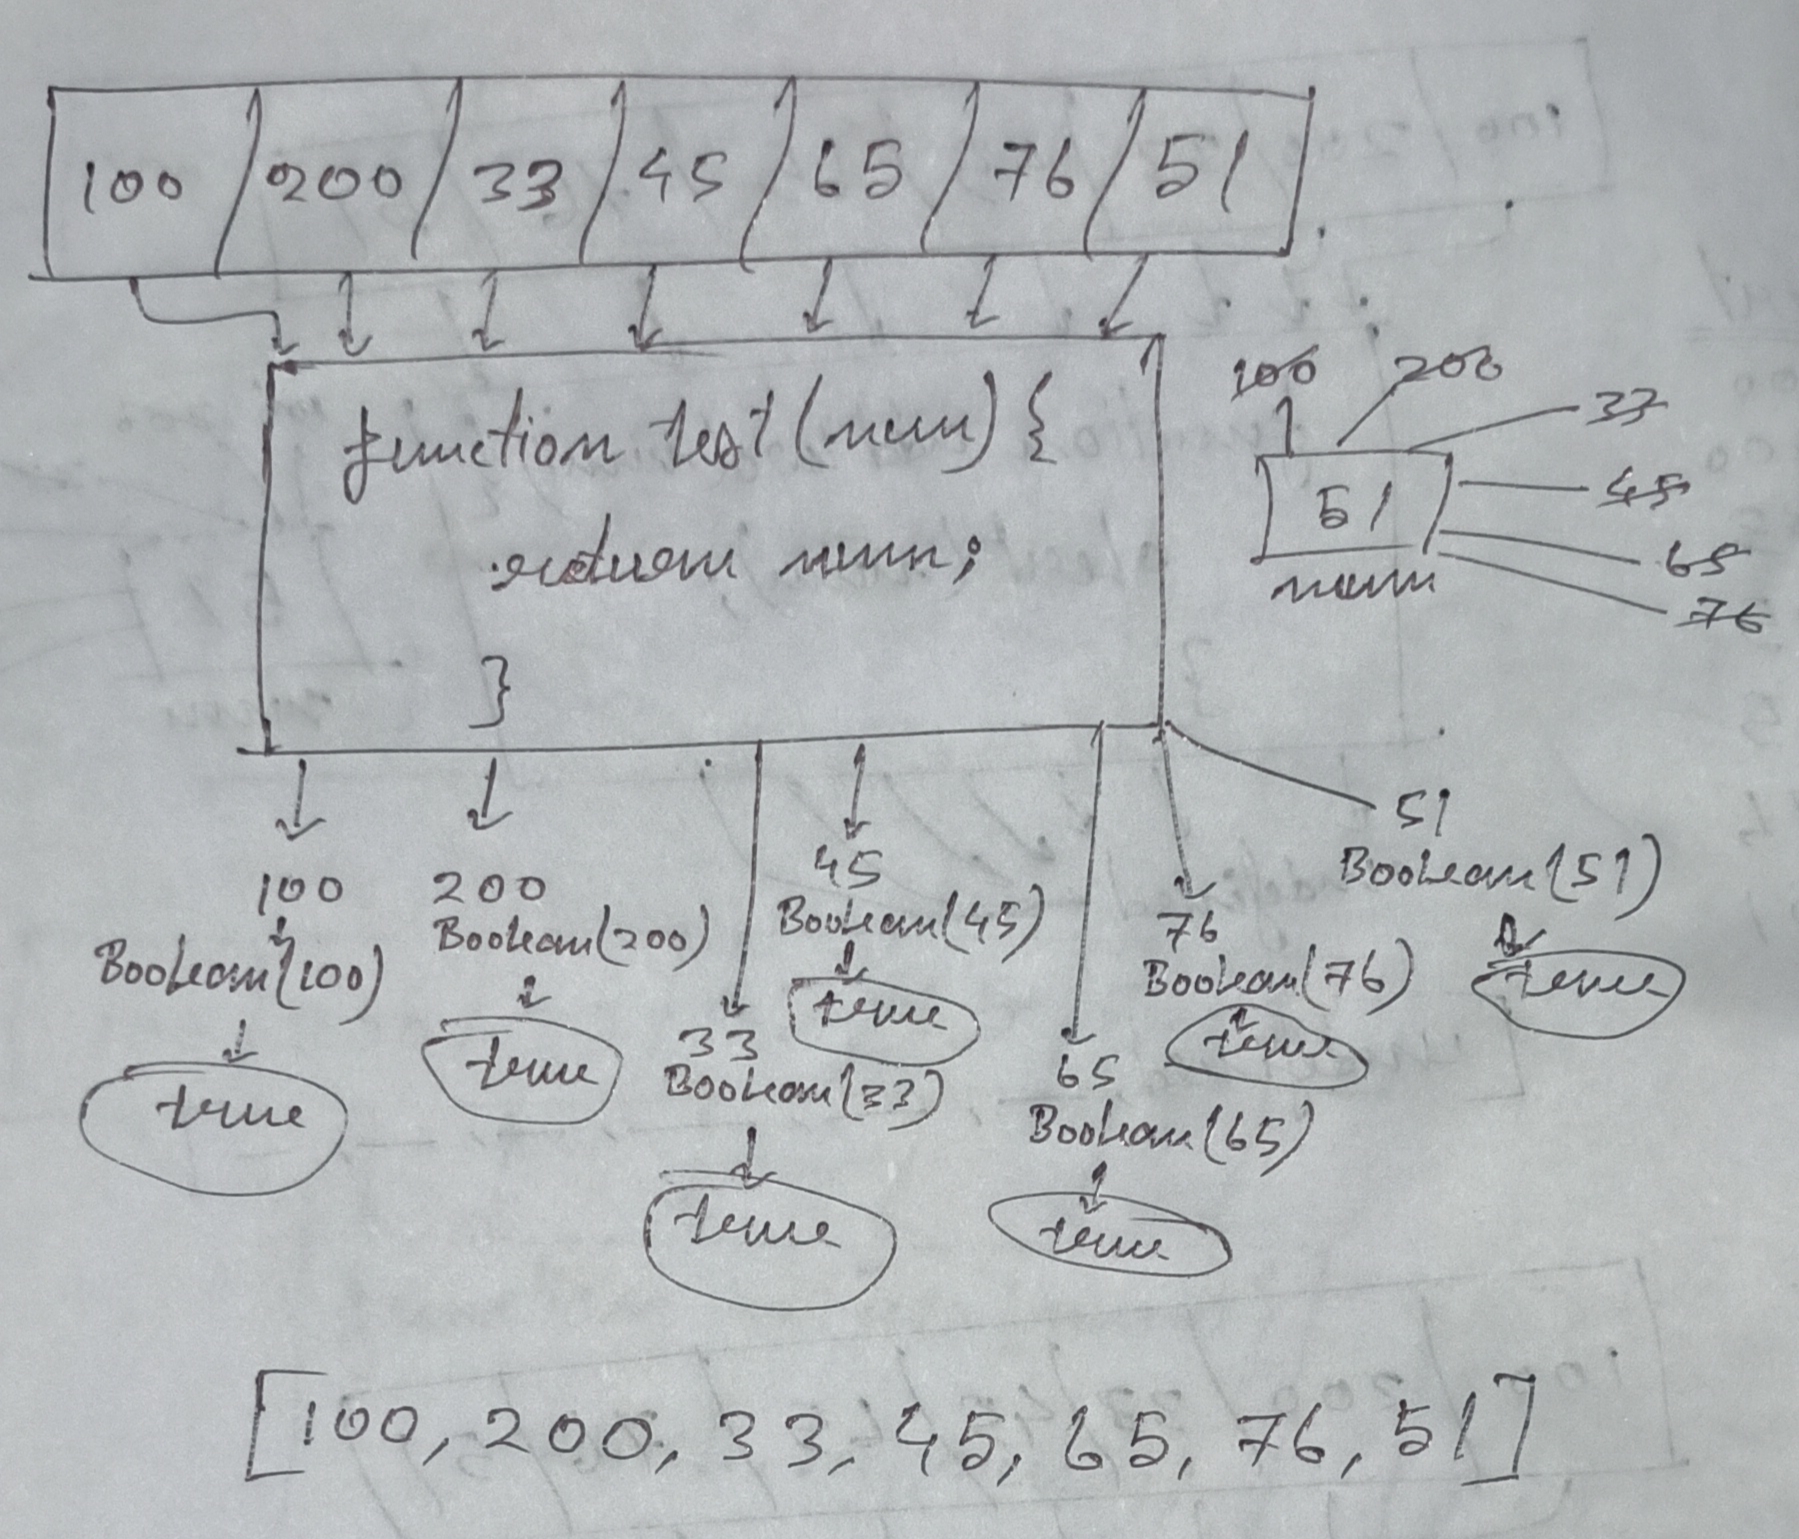 100 200 33 45 65 76 51
function test (num) {
return num;
}
100 200 33
45
65
76
51
num
100
Boolean(100)
true
200
Boolean(200)
true
33
Boolean(33)
true
45
Boolean(45)
true
65
Boolean(65)
true
76
Boolean(76)
true
51
Boolean(51)
true
[100, 200, 33, 45, 65, 76, 51]